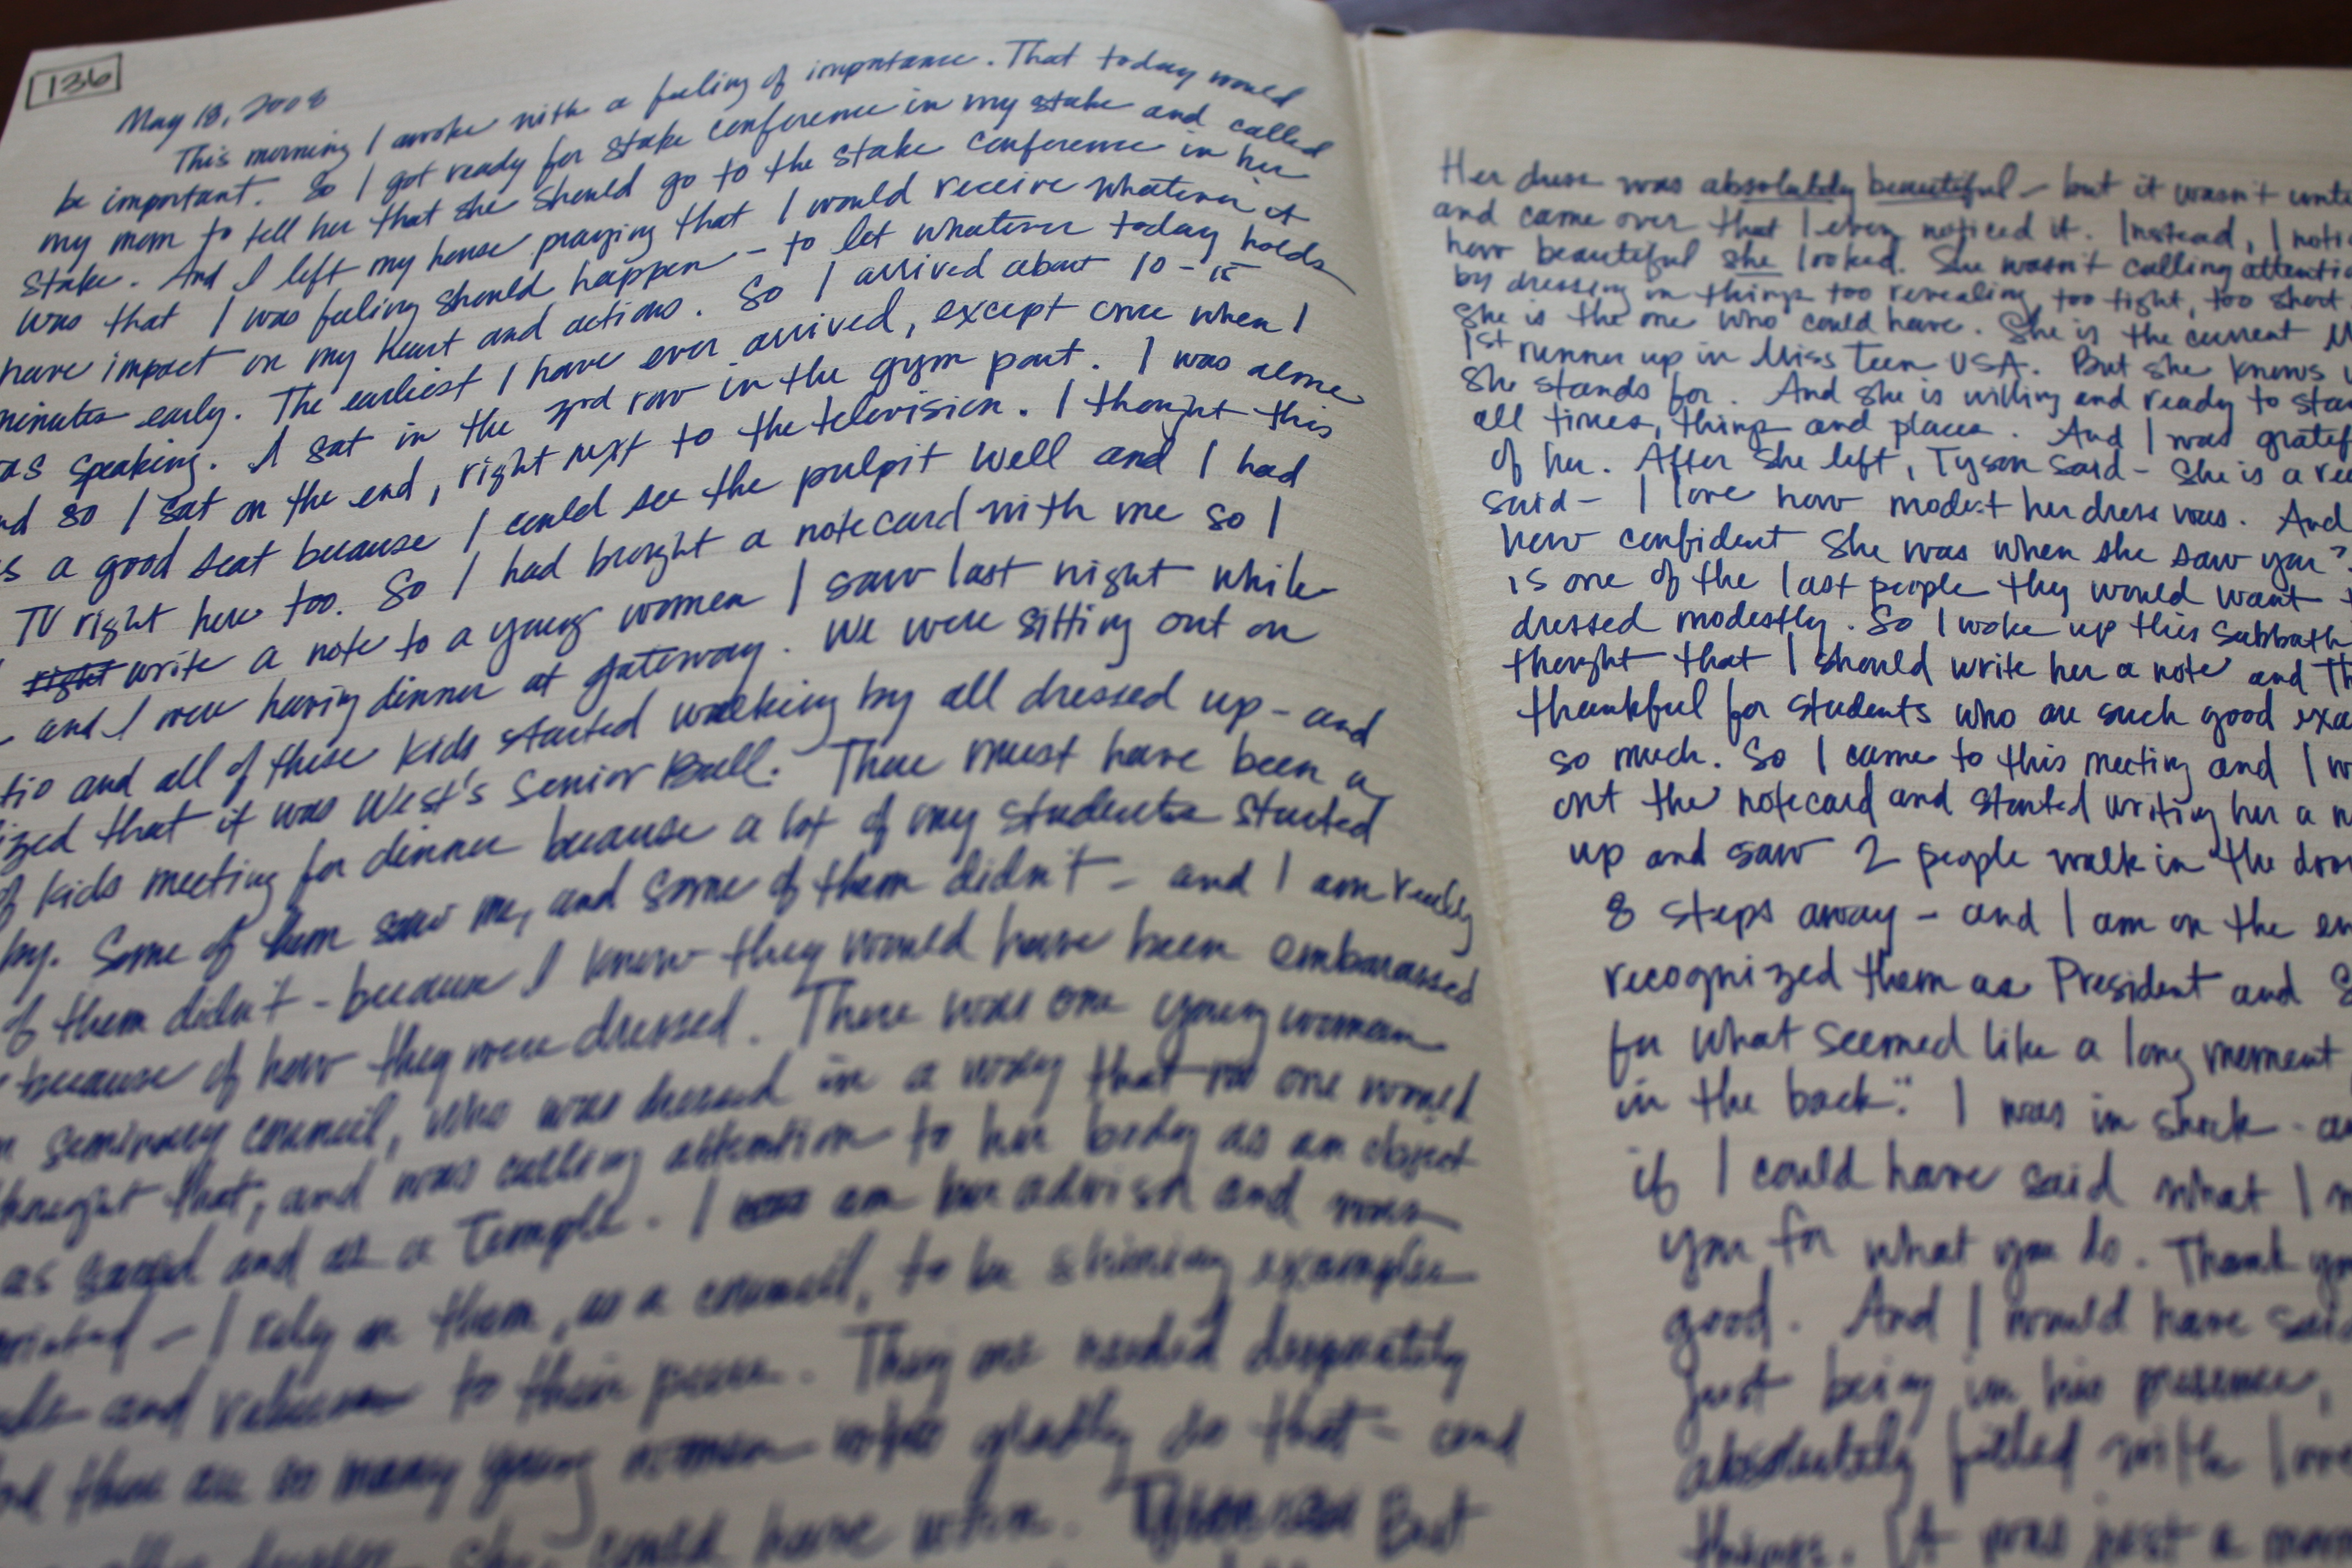 136
May 18, 2008
This morning I awoke with a feeling of importance. That today would
be important. So I got ready for stake conference in my stake and called
my mom to tell her that she should go to the stake conference in her
stake. And I left my house praying that I would receive whatever it
was that I was feeling should happen - to let whatever today holds
have impact on my heart and actions. So I arrived about 10-15
minutes early. The earliest I have ever arrived, except once when I
as speaking. I sat in the row in the gym part. I was alone
nd so I sat on the end, right next to the television. I thought this
s a good seat because I could see the pulpit well and I had
TV right here too. So I had brought a notecard with me so I
right write a note to a young women I saw last night while
and I were having dinner at gateway. We were sitting out on
tio and all of these kids started walking by all dressed up - and
ized that it was West's Senior Ball. There must have been a
of kids meeting for dinner because a lot of my students started
by. Some of them saw me, and some of them didn't - and I am really
of them didn't - because I know they would have been embarassed
because of how they were dressed. There was one young woman
n seminary council, who was dressed in a way that no one would
thought that, and was calling attention to her body as an object
as sacred and as a Temple. I am her advisor and was
- I rely on them, as a council, to be shining examples
and to their peers. They are needed desperately
there are so many young women who gladly do that - and
she could have when. But
Her dress was absolutely beautiful - but it wasn't unti
and came over that I even noticed it. Instead, I noti
how beautiful she looked. She wasn't calling attenti
by dressing in things too revealing, too tight, too short
She is the one who could have. She is the current M
1st runner up in Miss Teen USA. But she knows w
she stands for. And she is willing and ready to stan
all times, things and places. And I was gratef
of her. After she left, Tyson said - She is a rea
said - I love how modest her dress was. And
how confident she was when she saw you?
is one of the last people they would want t
dressed modestly. So I woke up this Sabbath
thought that I should write her a note and Th
thankful for students who are such good exa
so much. So I came to this meeting and I w
out the notecard and started writing her a n
up and saw 2 people walk in the door
8 steps away - and I am on the en
recognized them as President and S
for what seemed like a long moment
in the back." I was in shock - a
if I could have said what I
you for what you do. Thank yo
good. And I would have said
just being in his presence,
absolutely filled with love
things. It was just a mom